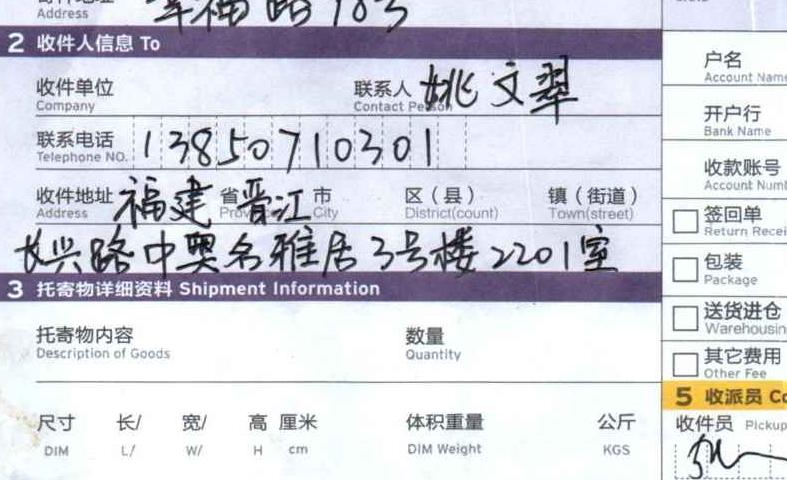 Address 幸福路18号
2 收件人信息 To
收件单位 联系人 姚文翠
Company Contact Person
联系电话 13850710301
Telephone NO.
收件地址 福建 省 晋江 市 区（县） 镇（街道）
Address Province City District(count) Town(street)
长兴路中奥名雅居3号楼2201室
3 托寄物详细资料 Shipment Information
托寄物内容 数量
Description of Goods Quantity
尺寸 长/ 宽/ 高 厘米 体积重量 公斤
DIM L/ W/ H cm DIM Weight KGS
户名
Account Name
开户行
Bank Name
收款账号
Account Numb
签回单
Return Recei
包装
Package
送货进仓
Warehousin
其它费用
Other Fee
5 收派员 Co
收件员 Pickup